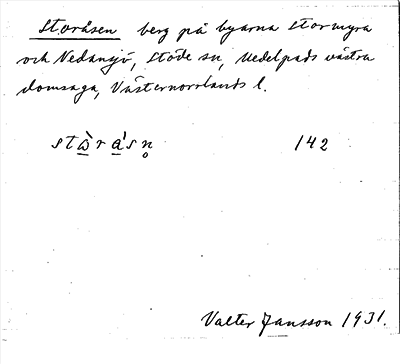 Storåsen berg på byarna Stormyra
och Nedansjö, Stöde sn, Medelpads västra
domsaga, Västernorrlands l.
stὼrás n̥ 142
Valter Jansson 1931.